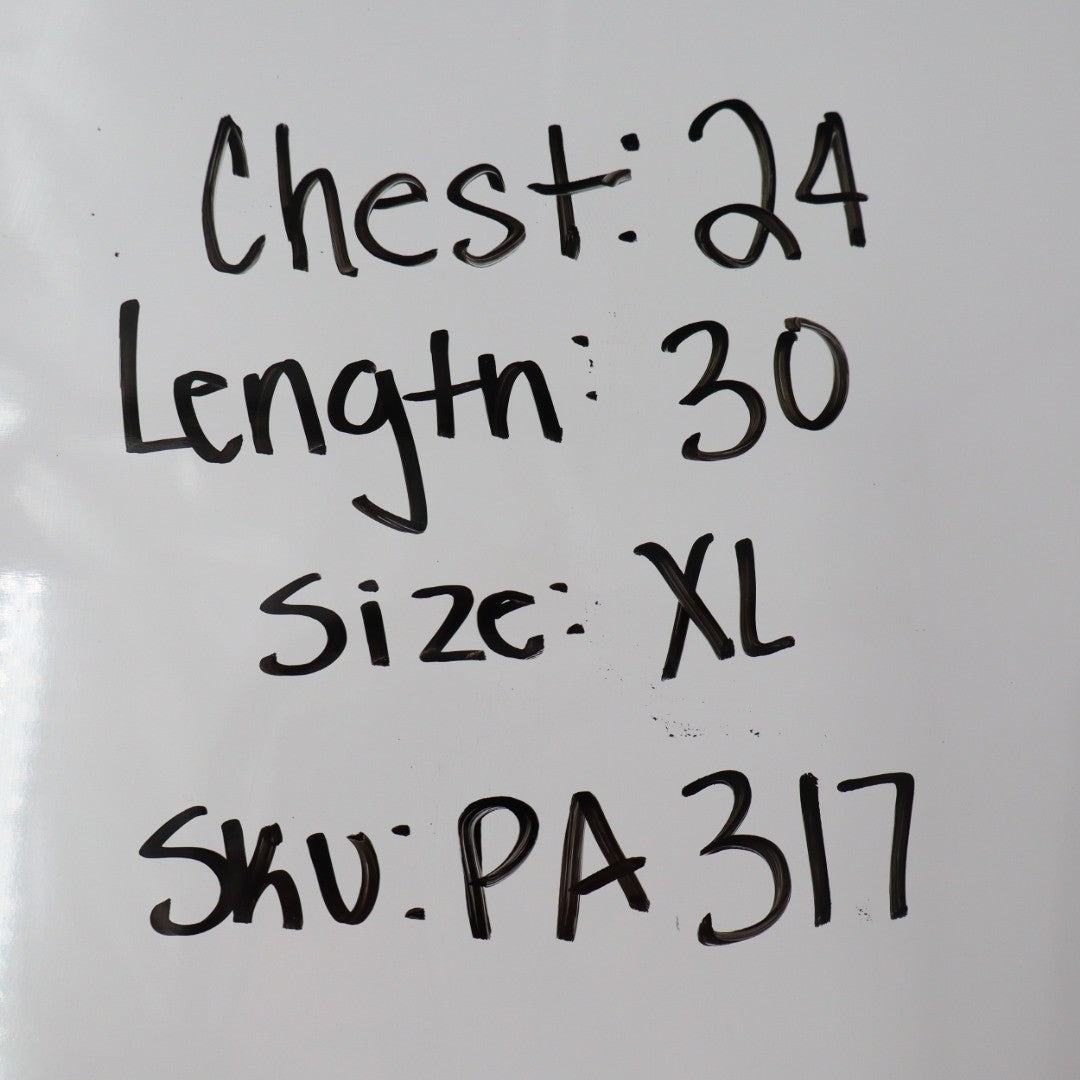 Chest: 24
Length: 30
Size: XL
SKU: PA317